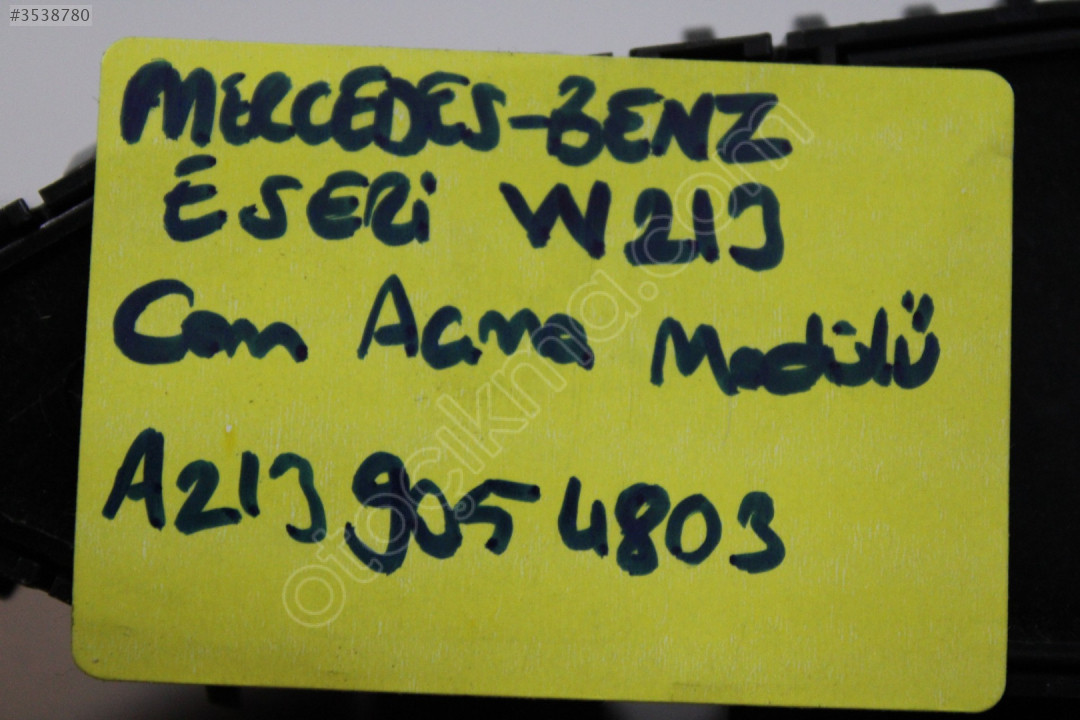 #3538780
MERCEDES-BENZ
E SERİ W213
Cam Acma Modülü
A213 905 4803
otocikma.com